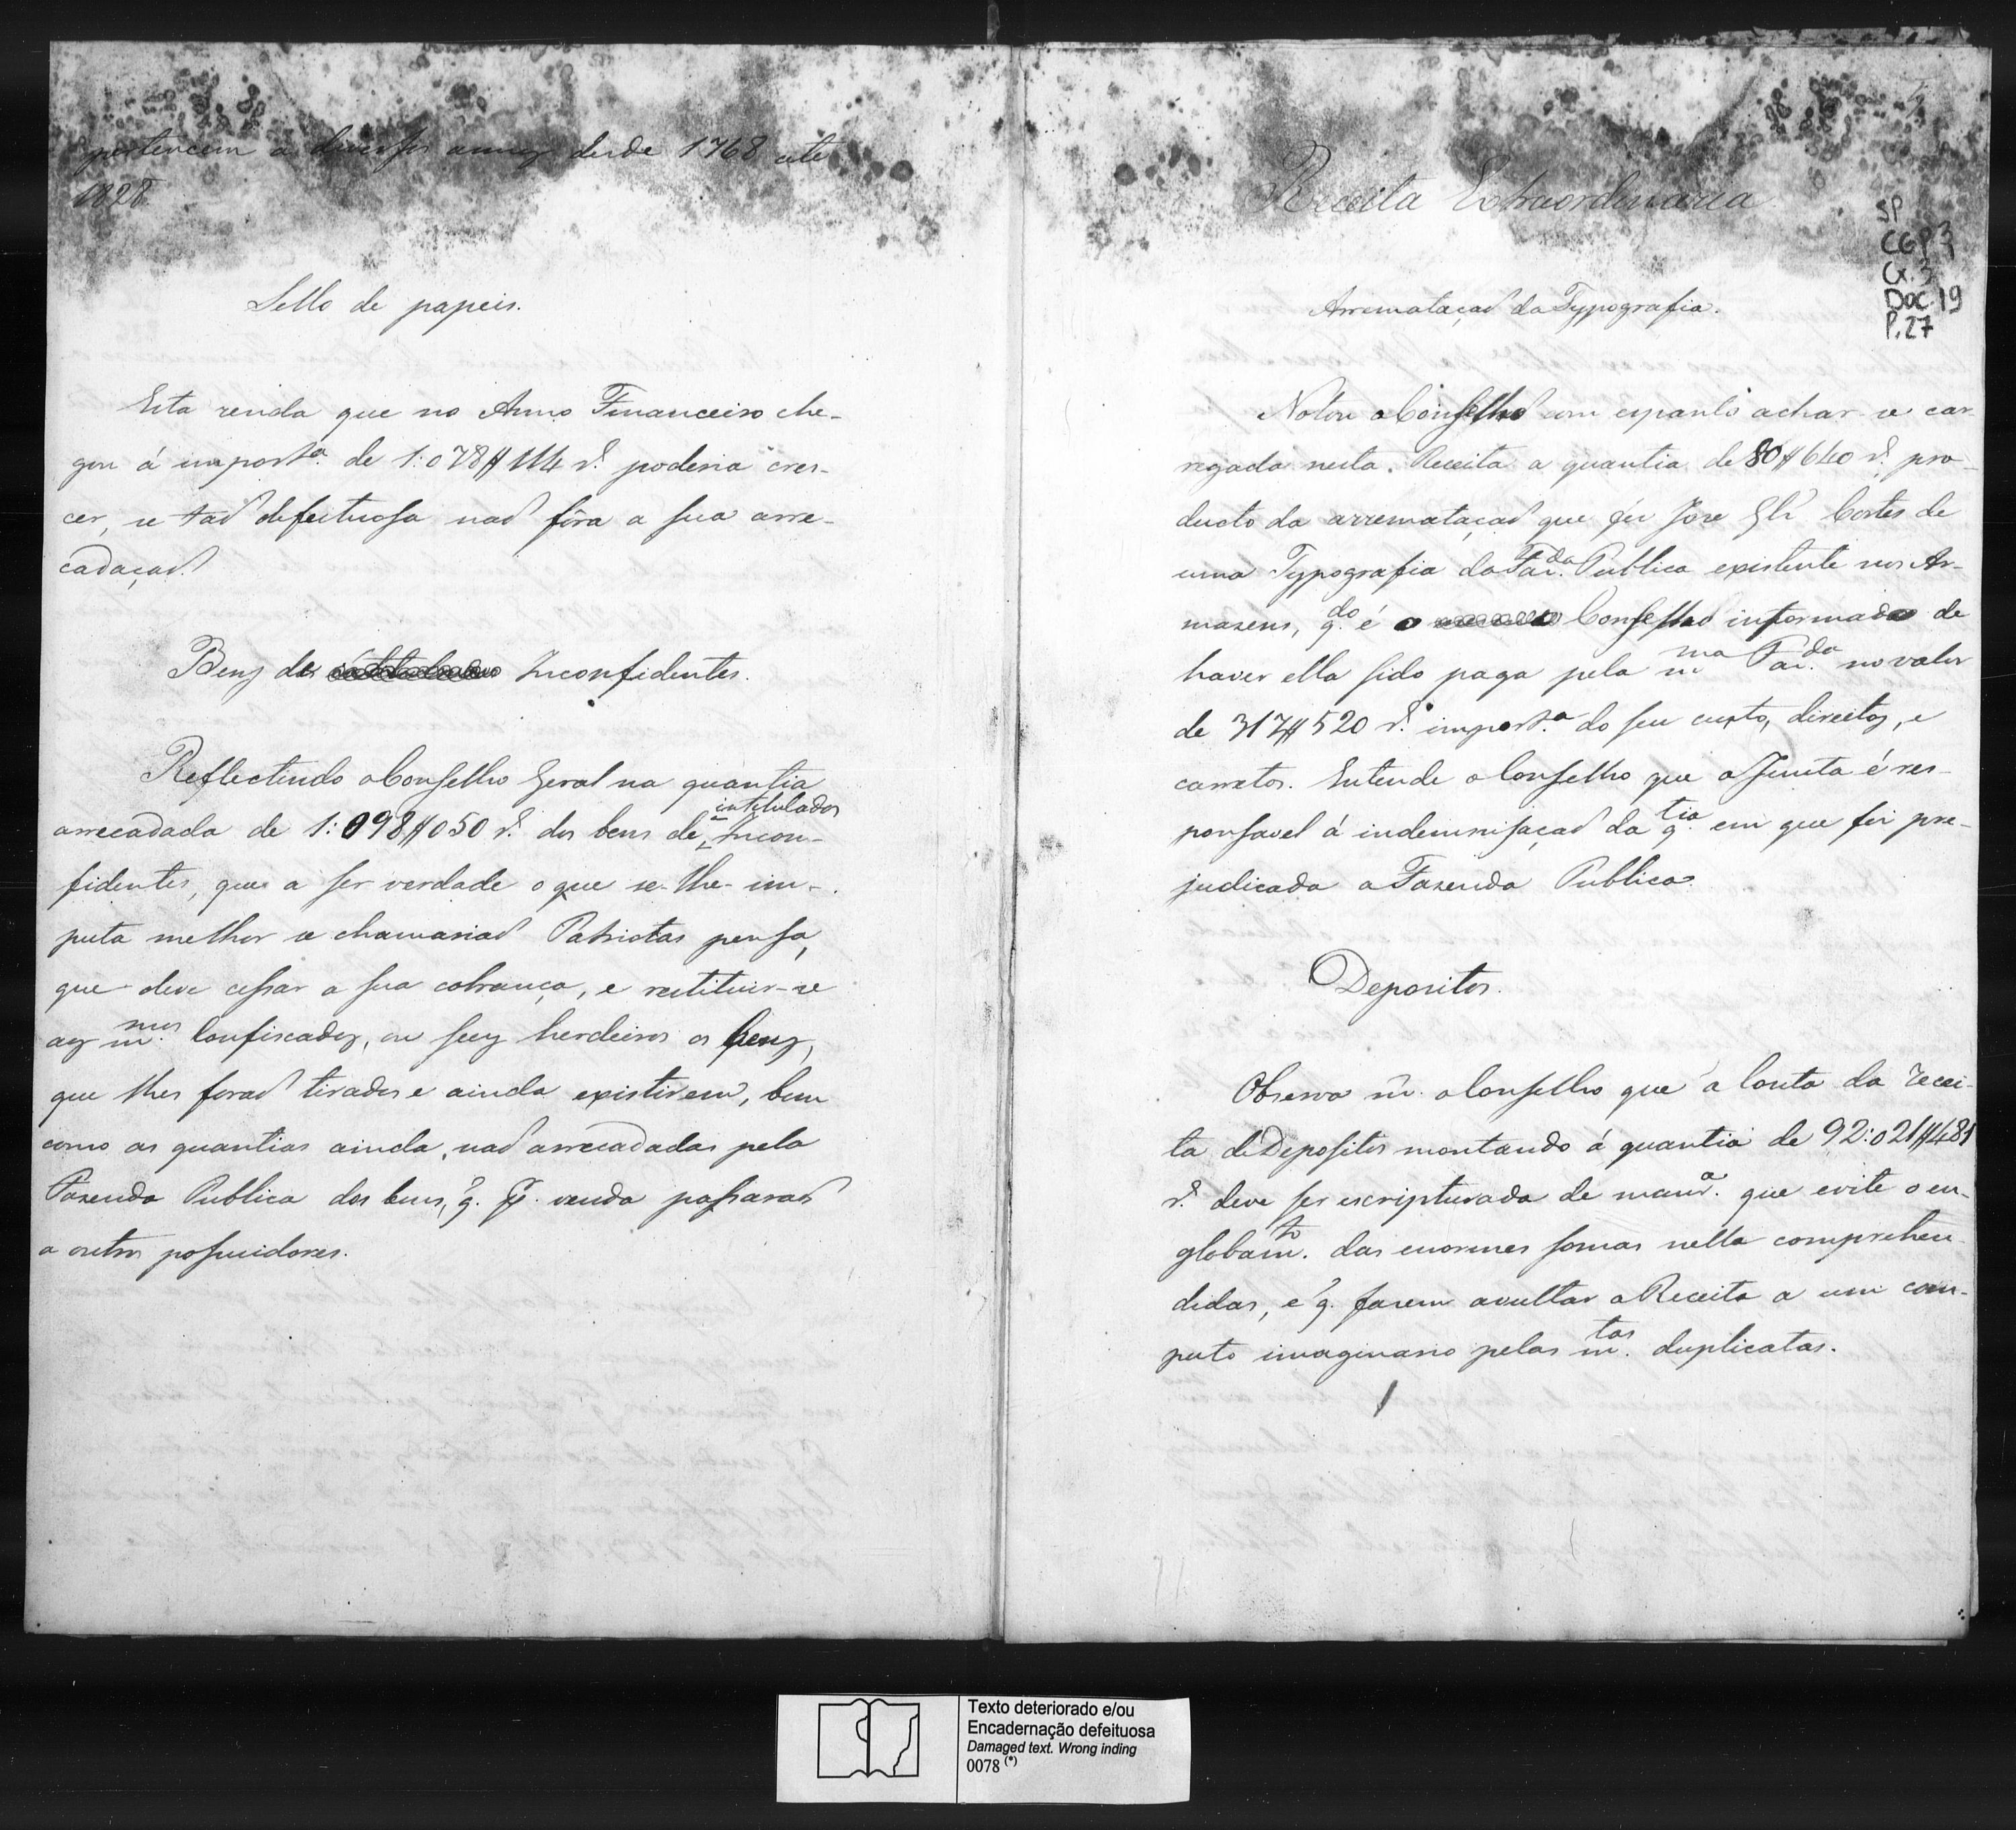 pertencem a diversos annos desde 1768 até
1828
Sello de papeis.
Esta renda que no Anno Financeiro che-
gou á import.ª de 1:078$114 r.ˢ poderia cres-
cer, se taõ defeituosa naõ fôra a sua arre-
cadaçaõ.
Bens dos Inconfidentes.
Reflectindo o Conselho Geral na quantia
arrecadada de 1:098$050 r.ˢ dos bens de intitulados Incon-
fidentes, que a ser verdade o que se-lhe-im-
puta melhor se chamariaõ Patriotas pensa,
que deve cessar a sua cobrança, e restituir-se
aos m.ᵐᵒˢ Confiscados, ou seus herdeiros os bens,
que lhes foraõ tirados e ainda existirem, bem
como as quantias ainda naõ arrecadadas pela
Fazenda Publica dos bens, q. p.ʳ venda passaraõ
a outros possuidores.
Receita Extraordinaria
SP
CGP3
Cx.3
Doc.19
P.27
Arremataçaõ da Typografia.
Notou o Conselho com espanto achar-se car-
regada nesta Receita a quantia de 80$640 r.ˢ pro-
ducto da arremataçaõ que fez Jose Glz' Cortes de
uma Typografia da Faz.ᵈᵃ Publica existente nos Ar-
mazens, q.ᵈᵒ é o Conselho informado de
haver ella sido paga pela m.ᵐᵃ Faz.ᵈᵃ no valor
de 317$520 r.ˢ import.ª do seu custo, direitos, e
carretos. Entende o Conselho que a Junta é res-
ponsavel á indemnisaçaõ da q.ᵗⁱᵃ em que foi pre-
judicada a Fazenda Publica.
Depositos.
Observa m. o Conselho que a Conta da Recei-
ta de Depositos montando á quantia de 92:021$481
r.ˢ deve ser escripturada de man.ʳᵃ que evite o en-
globam.ᵗᵒ das enormes somas nella comprehen-
didas, e q. fazem avultar a Receita a um com-
puto imaginario pelas m.ᵗᵃˢ duplicatas.
Texto deteriorado e/ou
Encadernação defeituosa
Damaged text. Wrong inding
0078 (*)